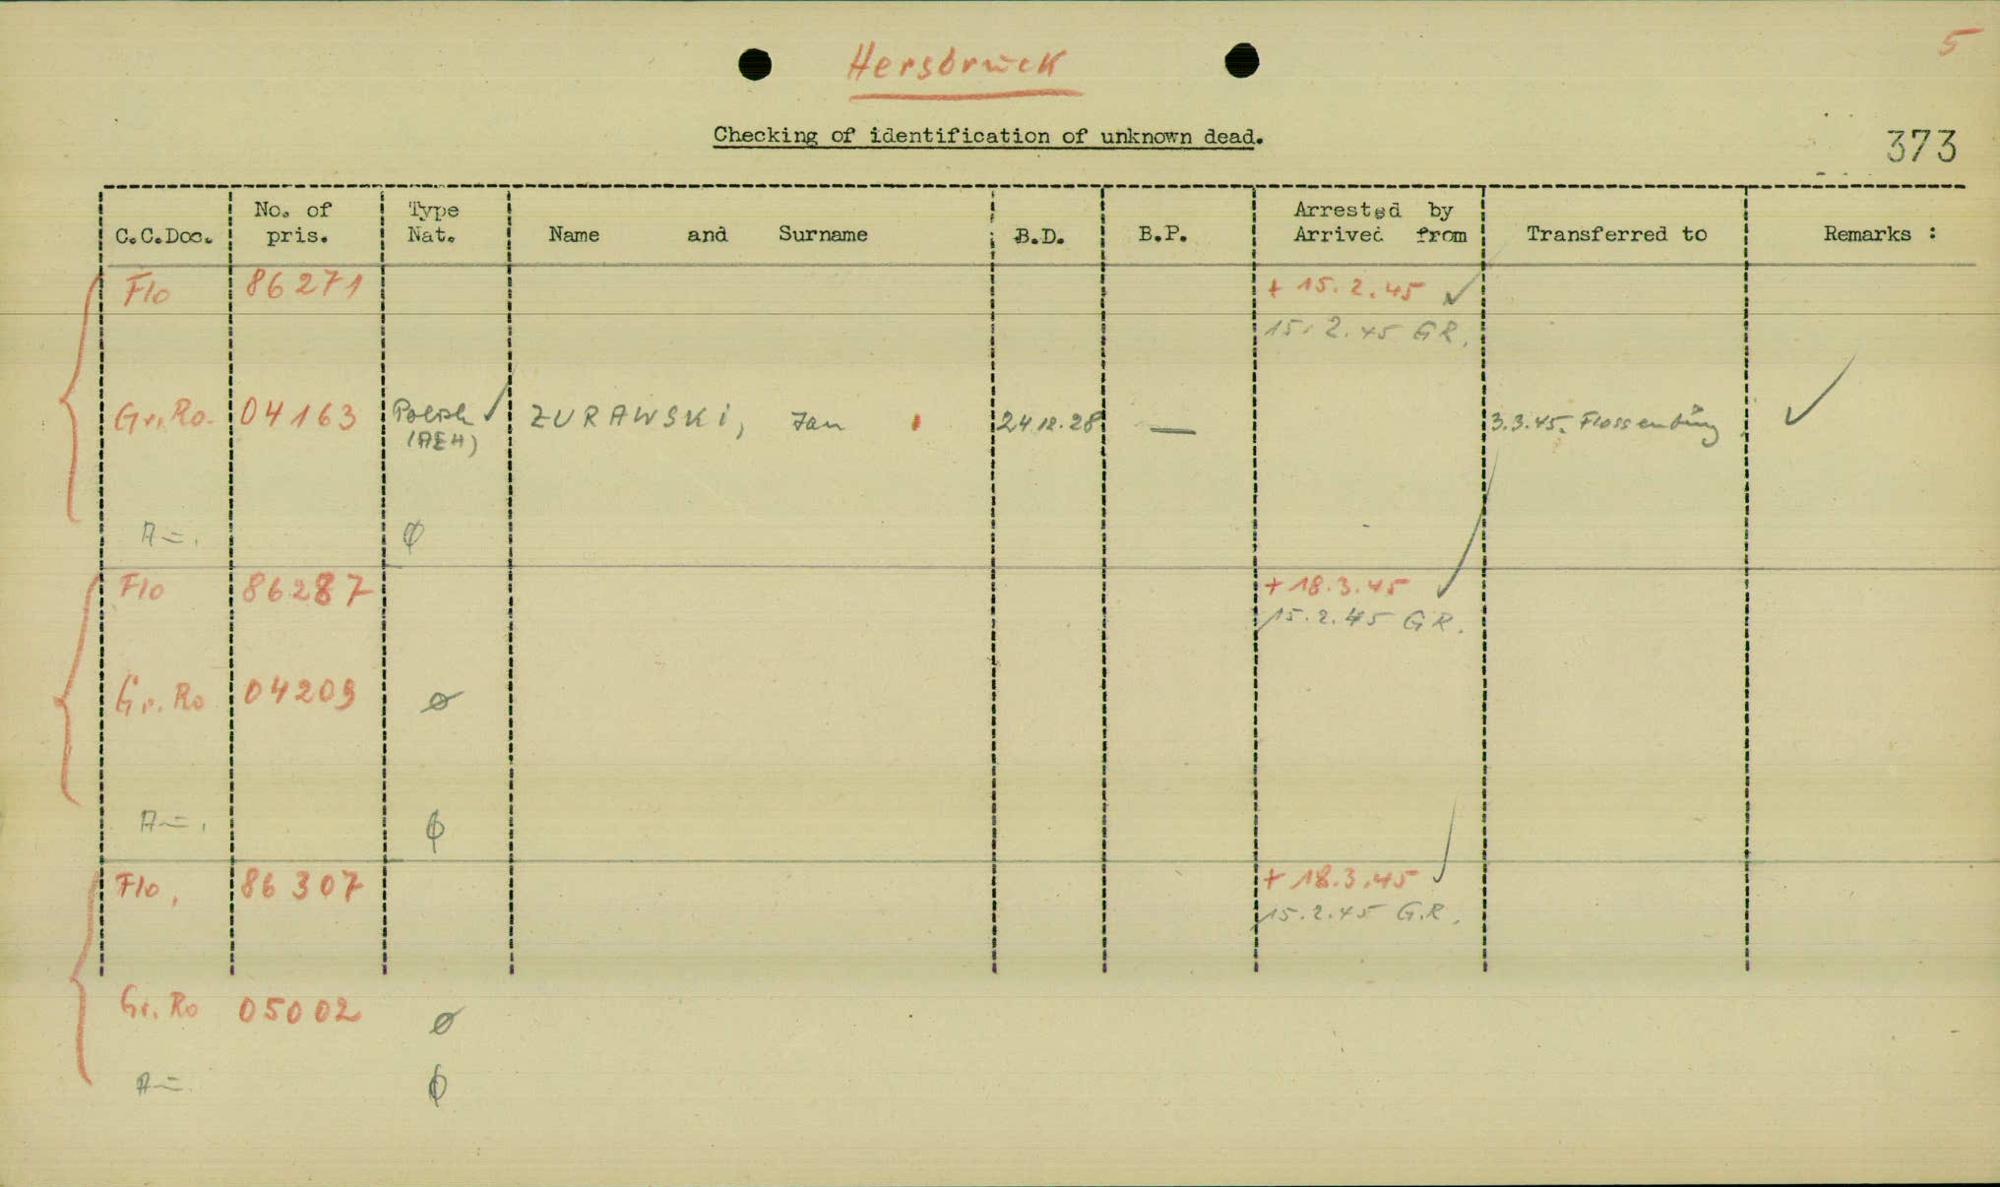 5
Hersbruck
Checking of identification of unknown dead.
373
C.C.Doc. No. of pris. Type Nat. Name and Surname B.D. B.P. Arrested by Arrived from Transferred to Remarks :
Flo 86271 + 15.2.45 ✓
15.2.45 GR.
Gr.Ro. 04163 Polish ✓ ZURAWSKi, Jan 24.12.28 — 3.3.45. Flossenbürg ✓
(AEH)
A=. φ
Flo 86287 + 18.3.45 ✓
15.2.45 GR.
Gr.Ro 04209 ø
A=. φ
Flo, 86307 + 18.3.45 ✓
15.2.45 G.R.
Gr.Ro 05002 ø
A= φ